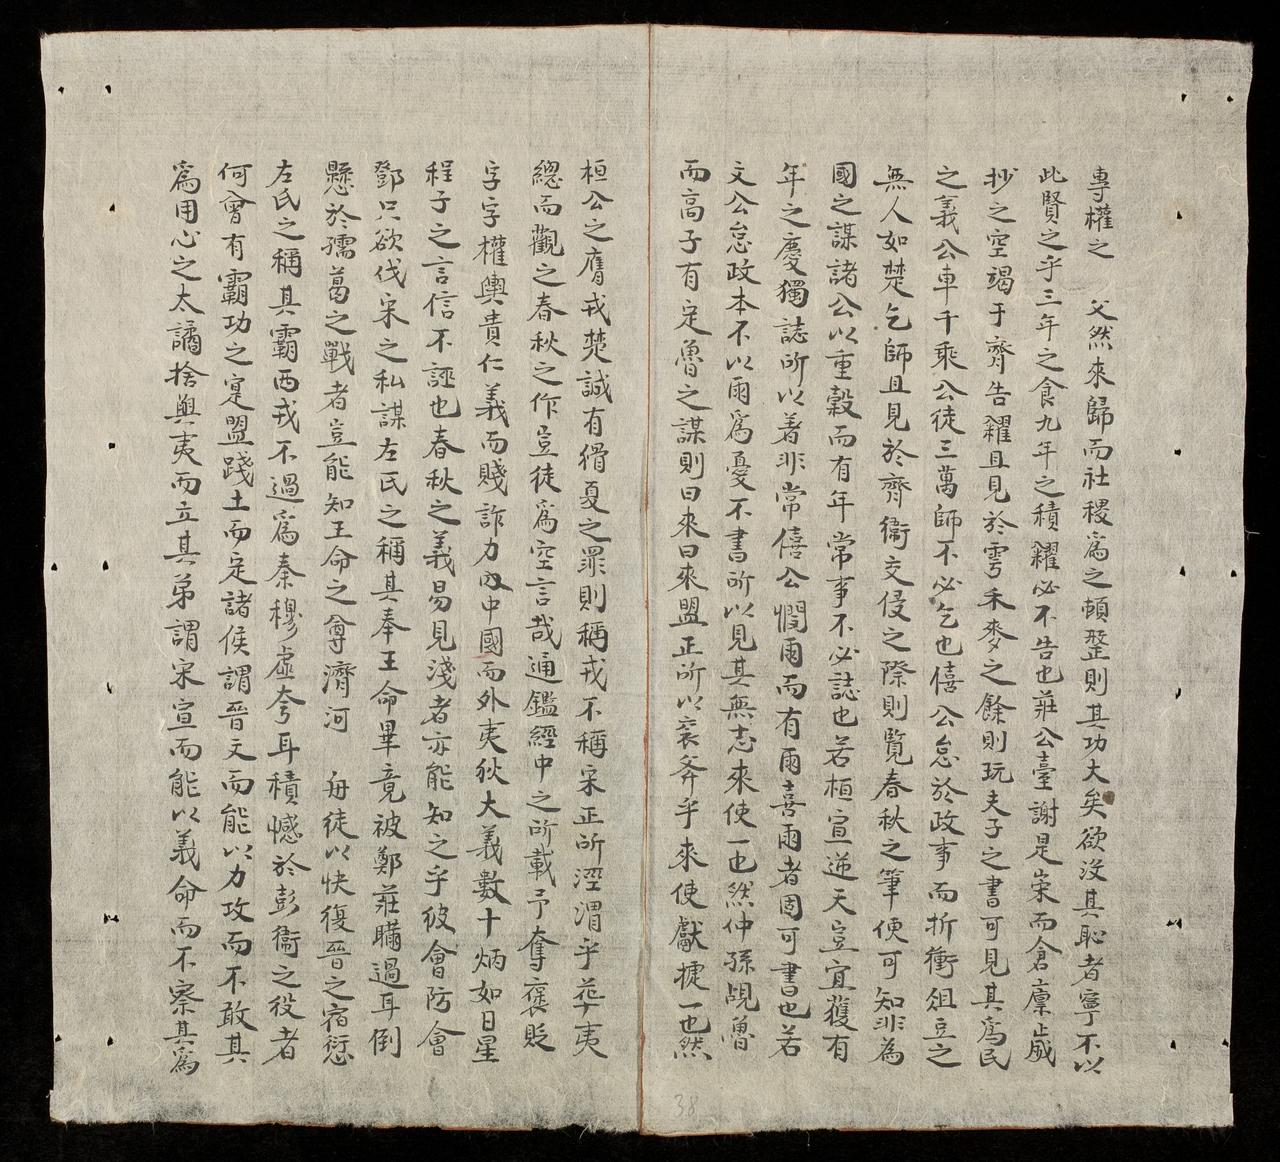 專權之 父然來歸而社稷為之頓整則其功大矣欲沒其恥者寧不以
此賢之乎三年之食九年之積糴必不告也莊公臺謝是崇而倉廩歲
抄之空竭于齊告糴且見於雩禾麥之餘則玩夫子之書可見其為民
之義公車千乘公徒三萬師不必乞也僖公怠於政事而折衝俎豆之
無人如楚乞師且見於齊衞交侵之際則覽春秋之筆便可知非為
國之謀諸公以重穀而有年常事不必誌也若桓宣逆天豈宜獲有
年之慶獨誌所以著非常僖公憫雨而有雨喜雨者固可書也若
文公怠政本不以雨為憂不書所以見其無志來使一也然仲孫覘魯
而高子有定魯之謀則曰來曰來盟正所以袞斧乎來使獻捷一也然
桓公之膺戎楚誠有猾夏之罪則稱戎不稱宋正所涇渭乎華夷
總而觀之春秋之作豈徒為空言哉通鑑經中之所載予奪褒貶
字字權輿貴仁義而賤詐力內中國而外夷狄大義數十炳如日星
程子之言信不誣也春秋之義易見淺者亦能知之乎彼會防會
鄧只欲伐宋之私謀左氏之稱其奉王命畢竟被鄭莊瞞過耳倒
懸於繻葛之戰者豈能知王命之尊濟河 舟徒以快復晉之宿愆
左氏之稱其霸西戎不過為秦穆虛夸耳積憾於彭衙之役者
何曾有霸功之寔盟踐土而定諸侯謂晉文而能以力攻而不敢其
為用心之太譎捨與夷而立其弟謂宋宣而能以義命而不察其為